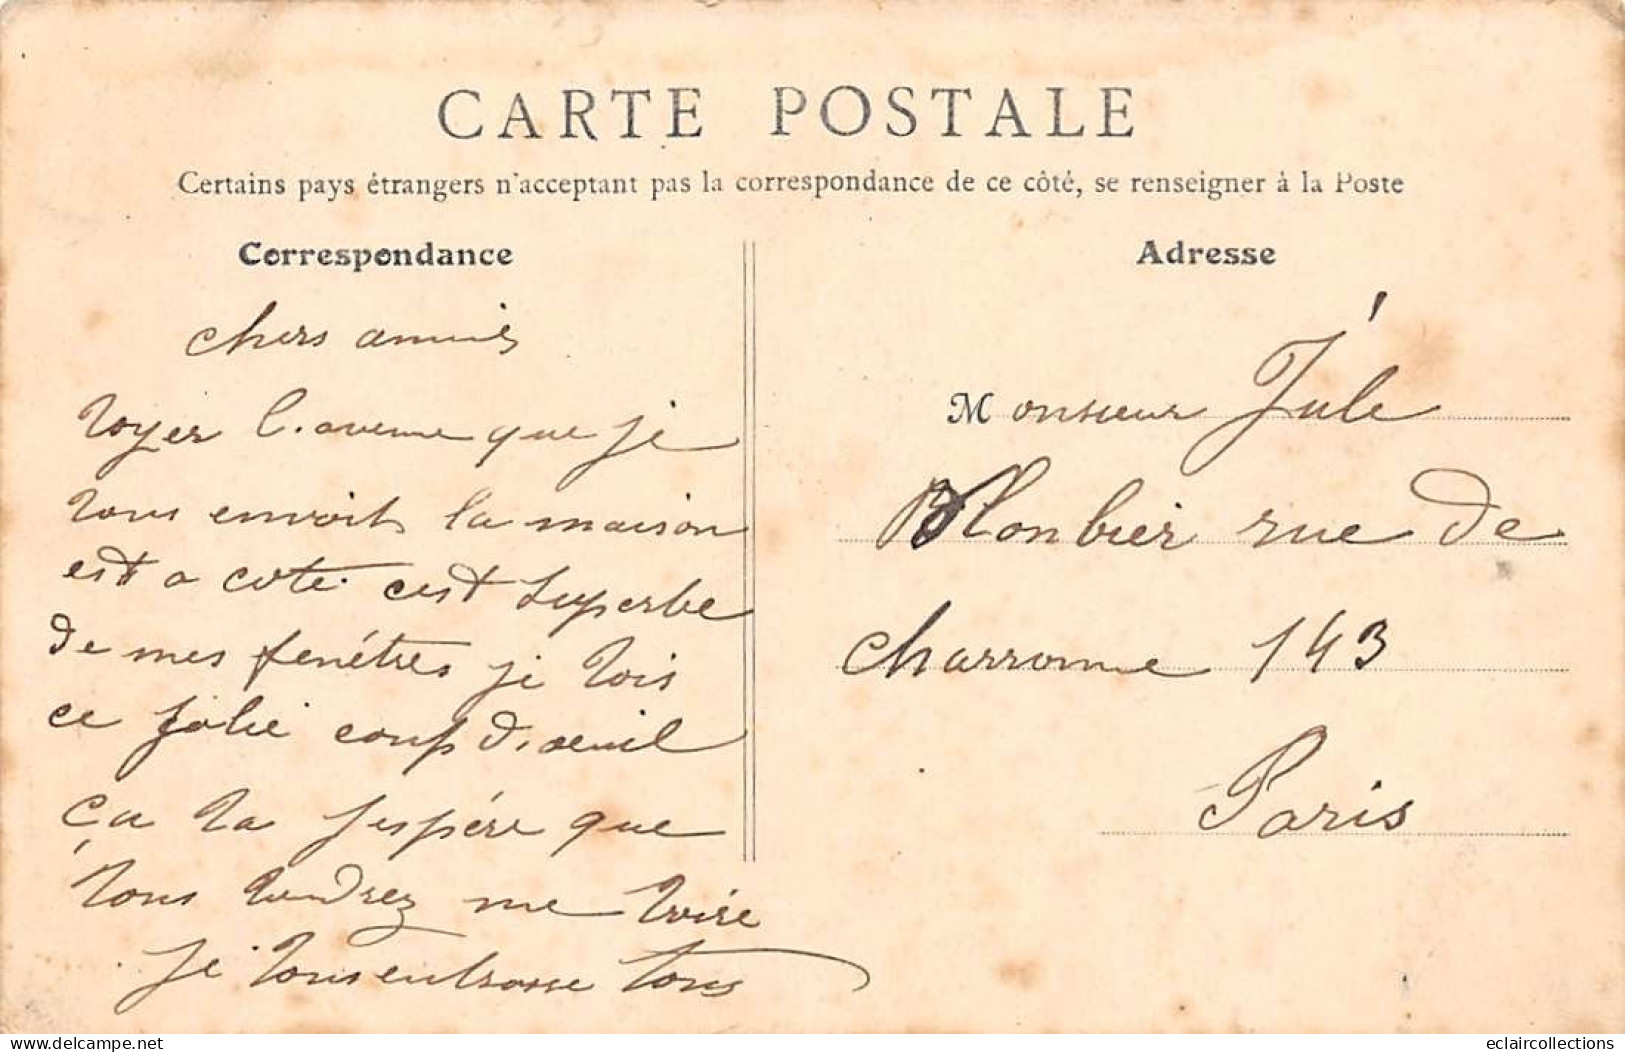 CARTE POSTALE
Certains pays étrangers n'acceptant pas la correspondance de ce côté, se renseigner à la Poste
Correspondance
chers amies
voyer l'avenue que je
vous envoit la maison
est a coté cest superbe
de mes fenétres je vois
ce jolie coup d'oeuil
ça va jespére que
vous vendrez me voire
je vous embrasse tous
Adresse
Monsieur Jule
Plonbier rue de
charronne 143
Paris
eclaircollections
delcampe.net